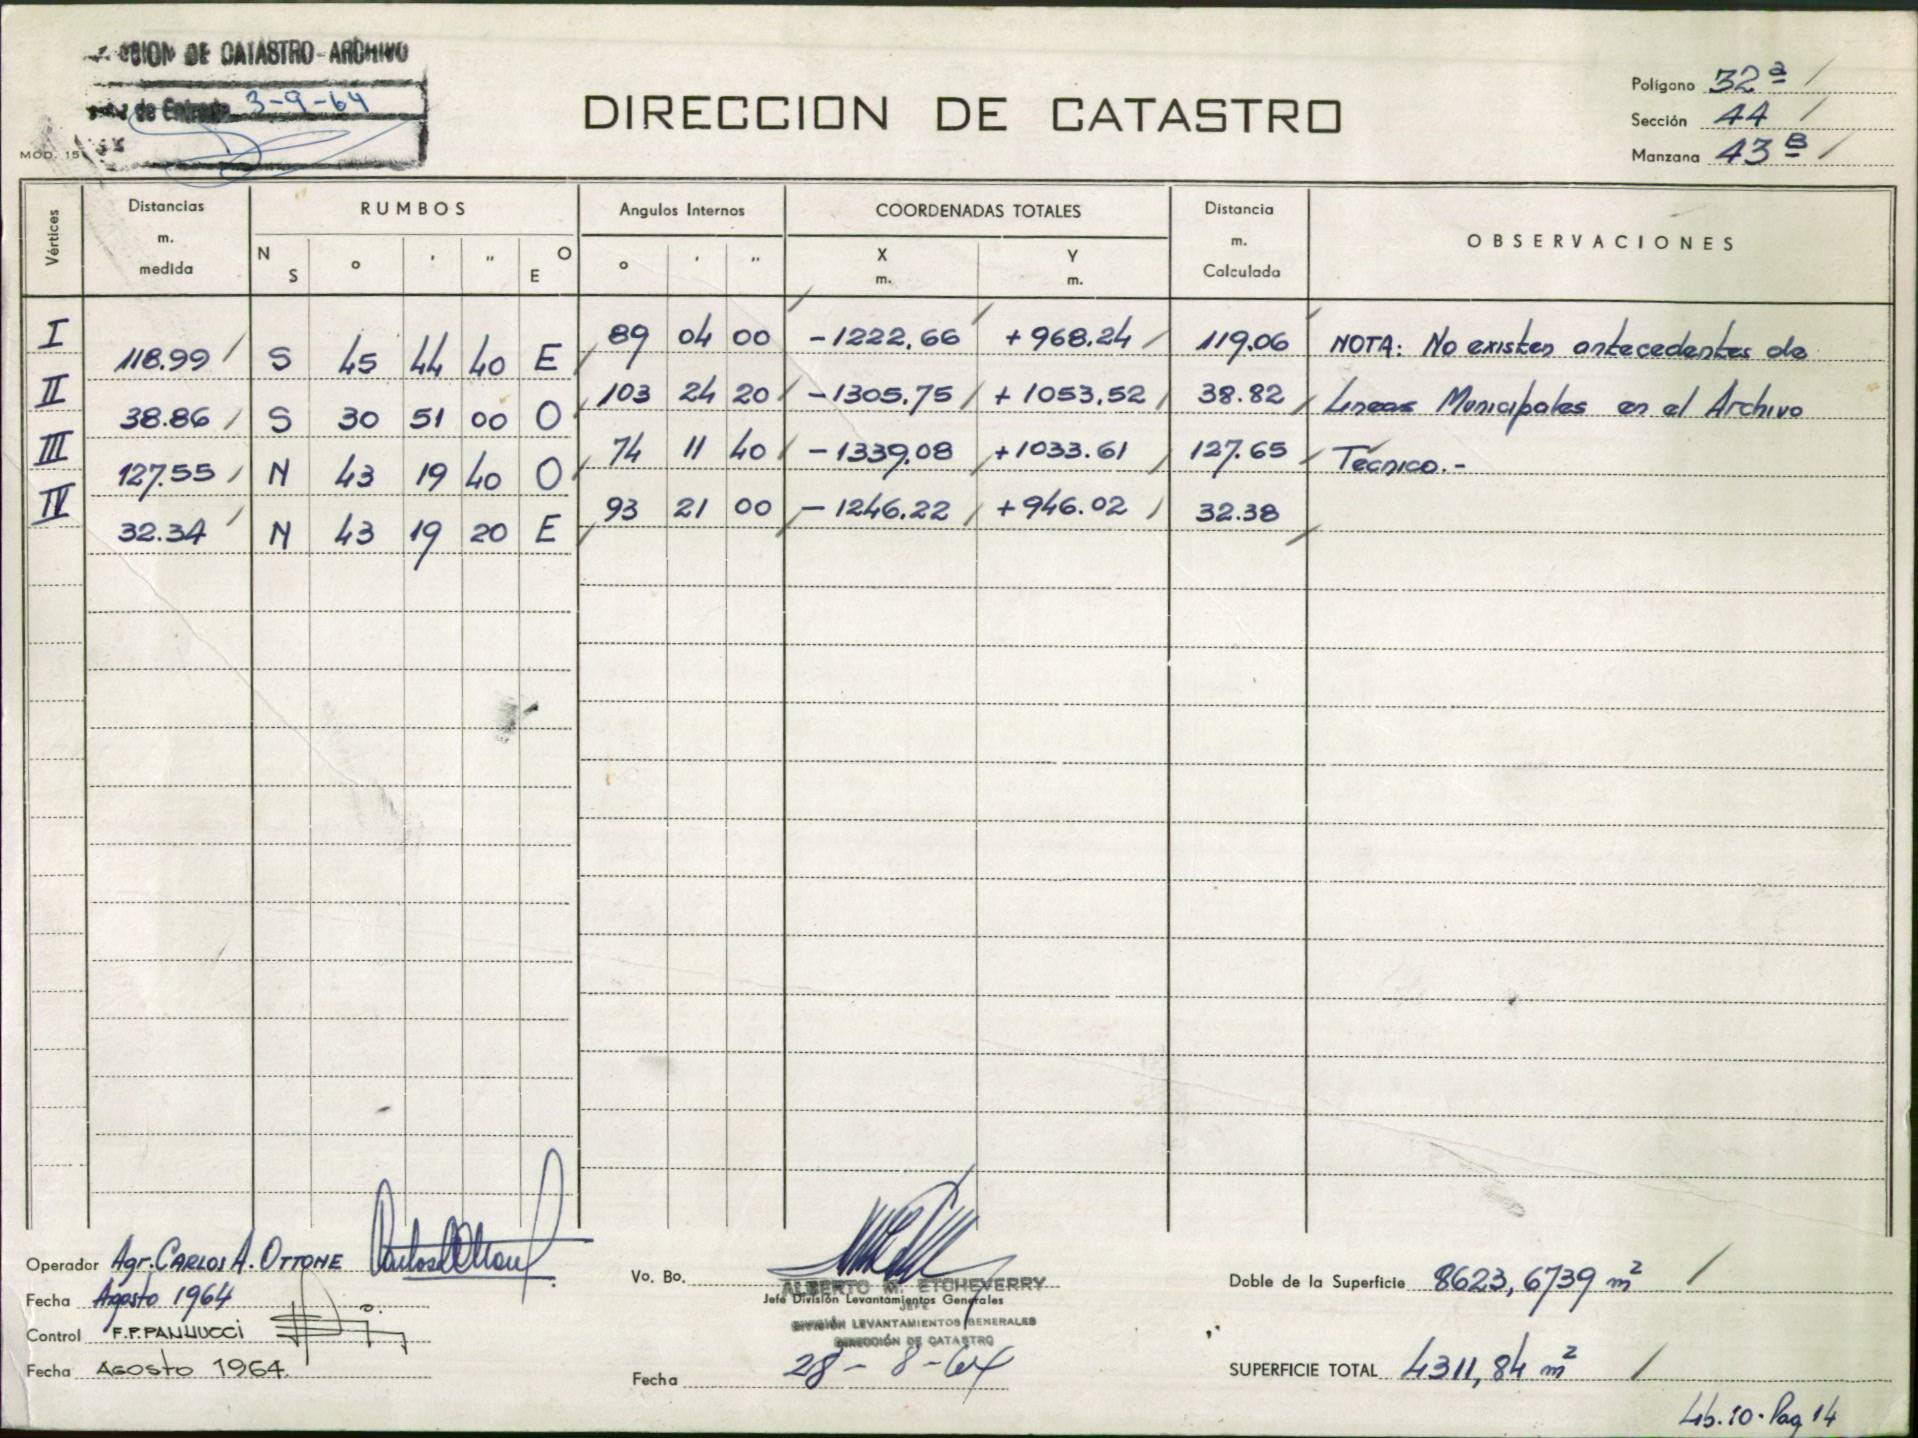 CCION DE CATASTRO-ARCHIVO
de Entrada 3-9-64
MOD. 15
DIRECCION DE CATASTRO
Polígono 32ª
Sección 44
Manzana 43 B
Vértices Distancias m. medida RUMBOS N S o ' " O E Angulos Internos o ' " COORDENADAS TOTALES X m. Y m. Distancia m. Calculada OBSERVACIONES
I 89 04 00 -1222,66 +968.24 119.06 NOTA: No existen antecedentes de
118.99 S 45 44 40 E
II 103 24 20 -1305,75 +1053,52 38.82 Líneas Municipales en el Archivo
38.86 S 30 51 00 O
III 74 11 40 -1339,08 +1033.61 127.65 Técnico.-
127.55 N 43 19 40 O
IV 93 21 00 -1246.22 +946.02 32.38
32.34 N 43 19 20 E
Operador Agr. CARLOS A. OTTONE
Fecha Agosto 1964
Control F.P. PANNUCCI
Fecha AGOSTO 1964.
Vo. Bo.
ALBERTO M. ETCHEVERRY
Jefe División Levantamientos Generales
JEFE
DIVISIÓN LEVANTAMIENTOS GENERALES
DIRECCIÓN DE CATASTRO
Fecha 28-8-64
Doble de la Superficie 8623,6739 m²
SUPERFICIE TOTAL 4311,84 m²
Lib. 10 - Pag 14